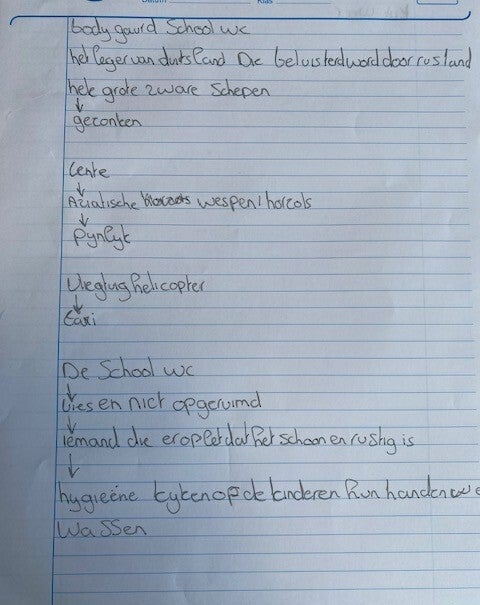 body gaurd School wc
het leger van duitsland Die beluisterd word door rusland
hele grote zware Schepen
↓
gezonken
Lente
↓
Aziatische wespen/horcols
↓
Pynlyk
Vliegtuig helicopter
↓
taxi
De School wc
↓
Vies en niet opgeruimd
↓
iemand die erop let dat het schoon en rustig is
↓
hygieëne kyken of de kinderen hun handen we
wassen